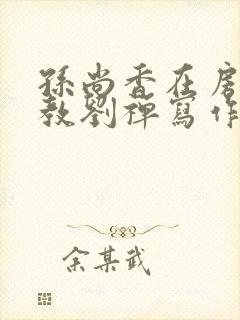 孫尚香在房
教劉禪寫作
余某武